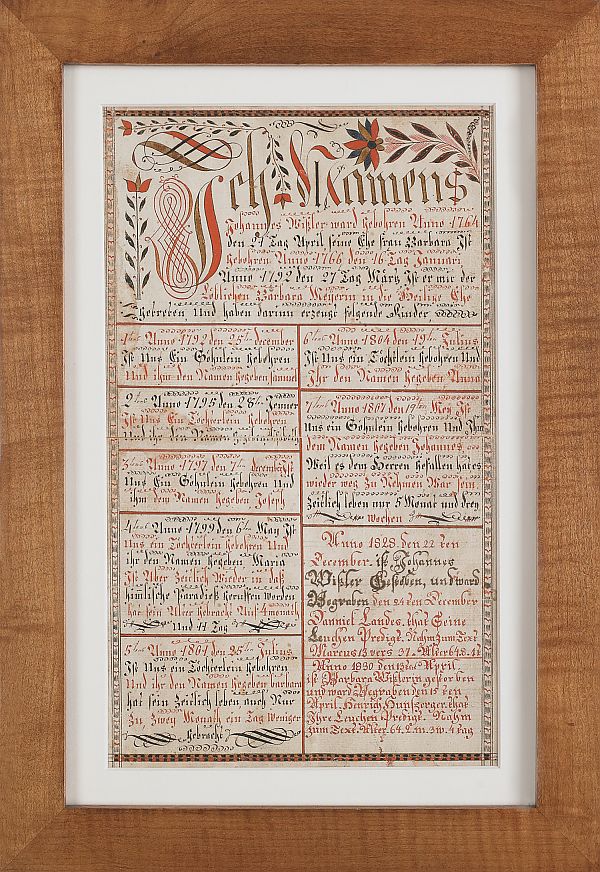 Ich Namens
Johannes Wißler ward Gebohren Anno 1764
den 21 Tag April seine Ehe frau Barbara Ist
Gebohren Anno 1766 den 16 Tag Januari
Anno 1792 den 27 Tag Martz Ist er mit der
Löblichen Barbara Meyerin in die Heilige Ehe
Getreten Und haben darinn erzeugt folgende Kinder
1 Anno 1792 den 25ten december
Ist Uns Ein Söhnlein Gebohren
Und ihm den Namen Gegeben Samuel
2 Anno 1795 den 28ten Jenner
Ist Uns Ein Töchterlein Gebohren
Und ihr den Namen Gegeben
3 Anno 1797 den 7ten december Ist
Uns Ein Söhnlein Gebohren Und
ihm dem Namen Gegeben Joseph
4 Anno 1799 den 6ten May Ist
Uns ein Töchterlein Gebohren Und
ihr den Namen Gegeben Maria
Ist Aber Zeitlich Wieder in daß
himlische Paradieß Geruffen worden
hat sein Alter Gebracht Auf 4 monath
Und 11 Tag
5 Anno 1801 den 25ten Julius
Ist Uns ein Töchterlein Gebohren
Und ihr den Namen Gegeben barbara
hat sein Zeitlich leben auch Nur
Zu Zwey Monath ein Tag Weniger
Gebracht
6 Anno 1804 den 19ten Julius
Ist Uns ein Töchterlein Gebohren Und
Ihr den Namen Gegeben Anna
7 Anno 1807 den 14ten Mey Ist
Uns ein Söhnlein Gebohren Und Ihm
dem Namen Gegeben Johannes
Weil es dem Herren Gefallen hat es
wieder weg Zu Nehmen War sein
Zeitlich leben nur 5 Monat und drey
wochen
Anno 1828 den 22 ten
December ist Johannes
Wißler Gestoben, und ward
Begraben den 24 ten December
Danniel Landes, that Seine
Leuchen Predigt. Nahm Zum Text
Marcus 13 vers 37. Alter 64.8.1d
Anno 1830 den 13 ten April
ist Barbara Wislerin gestorben
und ward Begraben den 15 ten
April, Henrich Hunßzerger, that
Ihre Leuchen Predigt. Nahm
zum Text. Alter. 64. 2. m. 3 w. 4 tag